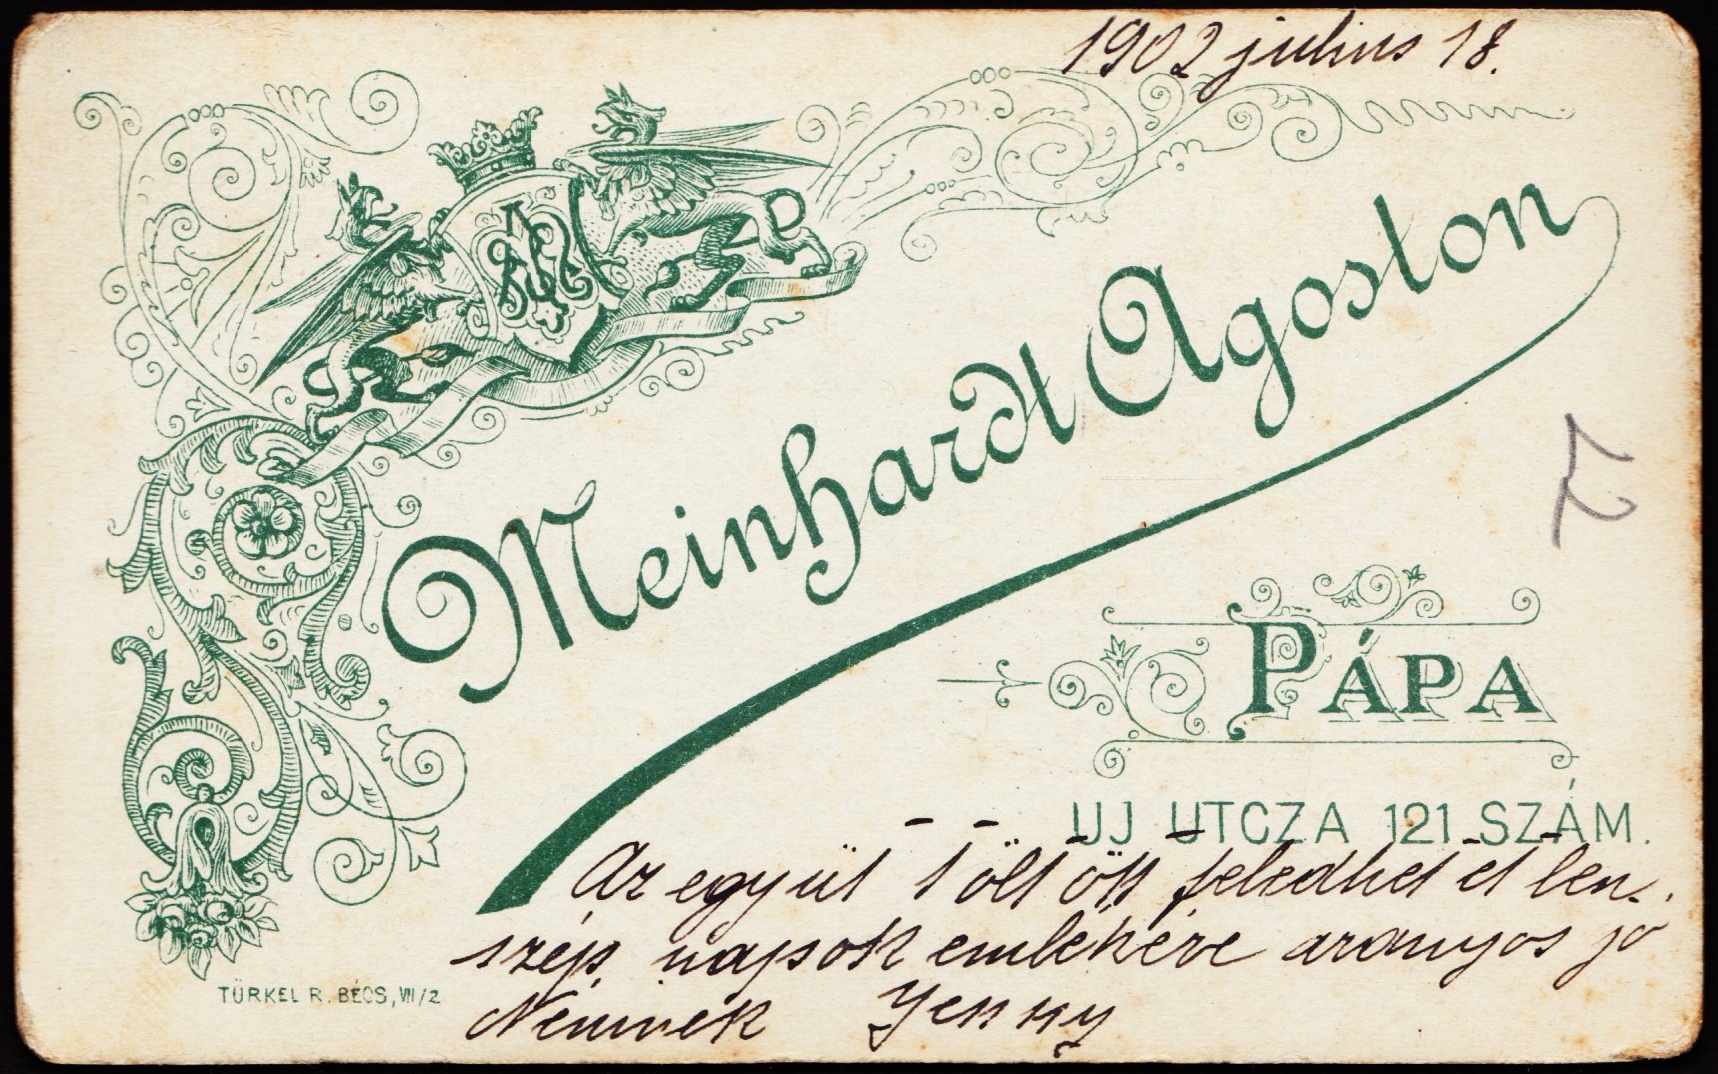 1902 julius 18.
AM
Meinhardt Agoston
PÁPA
UJ UTCZA 121 SZÁM.
Az együtt töltött feledhetetlen
szép napok emlékére aranyos jó
Néninek Jenny
TÜRKEL R. BÉCS, VII/2